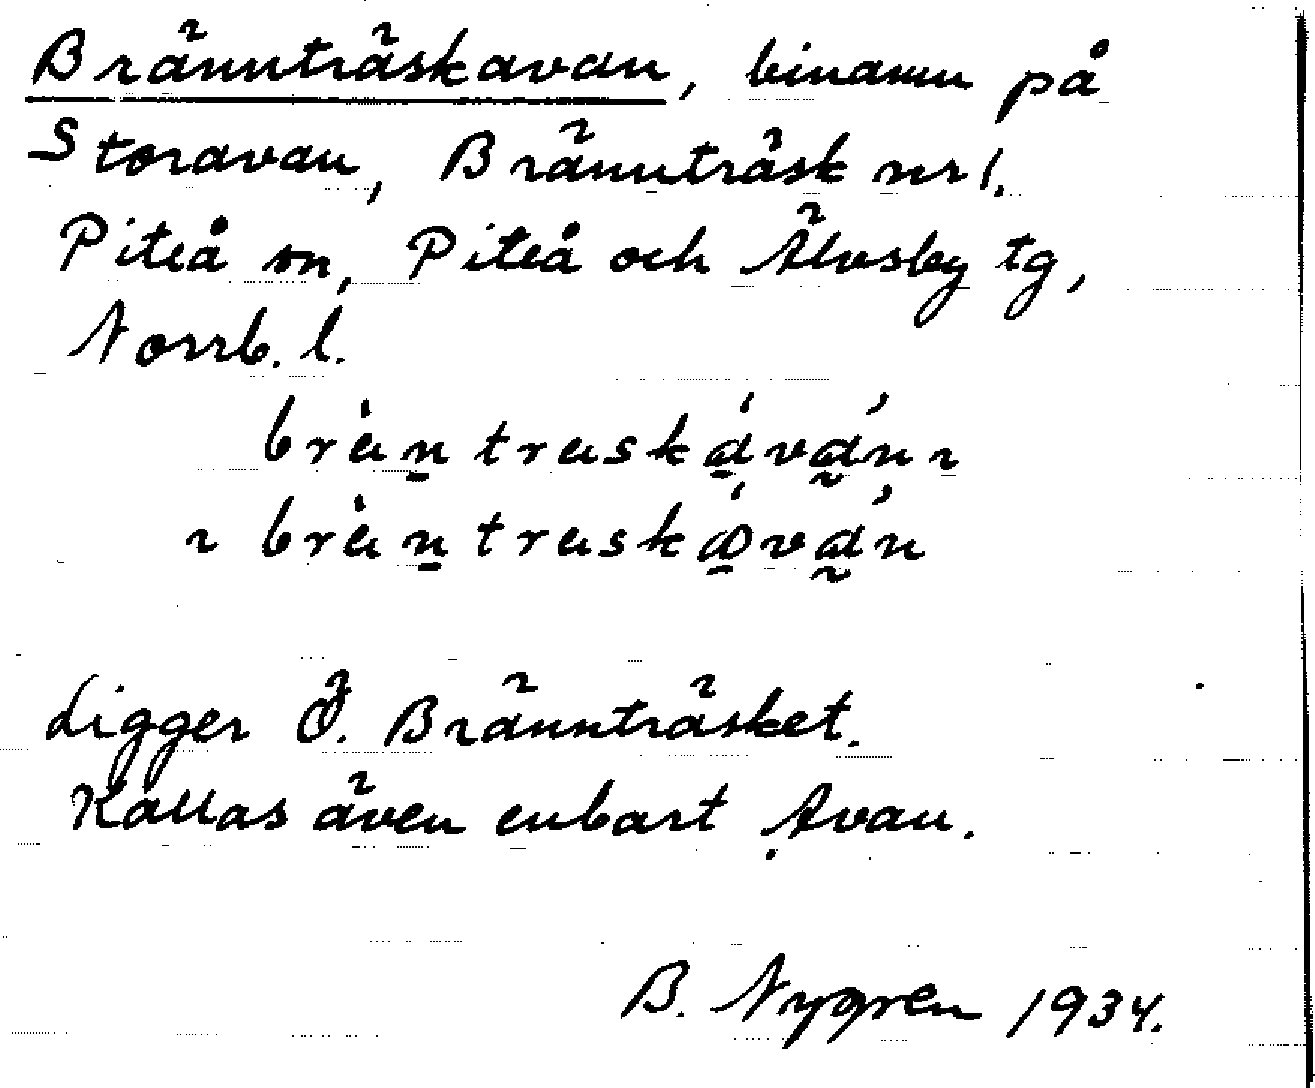 Brännträskavan, binamn på
Storavan, Brännträsk nr 1.
Piteå sn, Piteå och Älvsby tg,
Norrb. l.
brä̀n̠träskáván ~
~ brä̀n̠träskáván
Ligger Ö. Brännträsket.
Kallas även enbart Avan.
B. Nygren 1934.